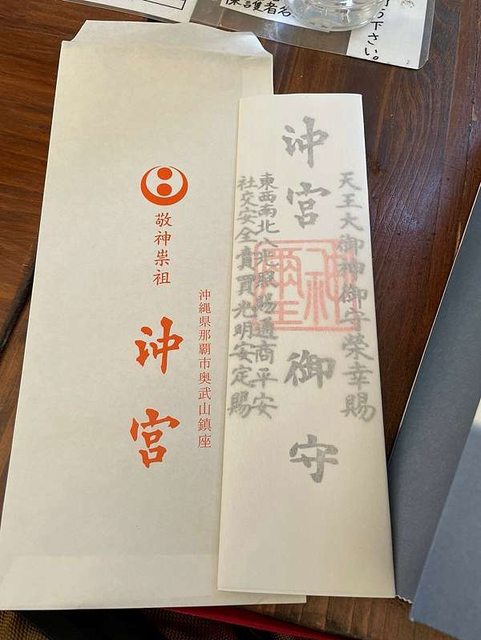 護者名
下さい。
沖縄県那覇市奥武山鎮座
敬神崇祖
沖宮
天王大御神御守榮幸賜
沖宮御守
東西南北八 賜通商平安
社交安全賣買光明安定賜